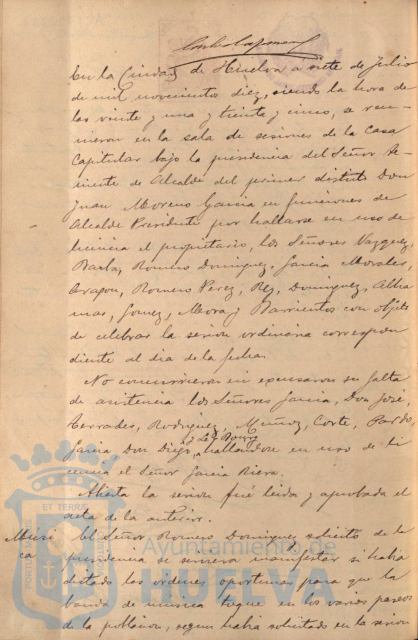 En la Ciudad de Huelva a siete de Julio
de mil novecientos diez, siendo la hora de
las veinte y una y treinta y cinco, se reu-
nieron en la sala de sesiones de la Casa
Capitular bajo la presidencia del Señor Te-
niente de Alcalde del primer distrito Don
Juan Moreno Garcia en funciones de
Alcalde Presidente por hallarse en uso de
licencia el propietario, los Señores Vazquez,
Barba, Romero Dominguez, Garcia Morales,
Aragon, Romero Perez, Rey, Dominguez, Alba
mar, Gomez, Mora y Barrientos con objeto
de celebrar la sesion ordinaria correspon
diente al dia de la fecha.
No concurrieron ni expusaron su falta
de asistencia los Señores Garcia, Don José,
Terrades, Rodriguez, Muñoz, Corte, Pardo,
Garcia Don Diego, hallandose en uso de li
cencia el Señor Garcia
Abierta la sesion fué leida y aprobada el
acta de la anterior.
Músi
ca
El Señor Romero Dominguez solicitó de la
presidencia se sirviera manifestar si habia
dictado las ordenes oportunas para que la
banda de musica toque en los varios paseos
de la poblacion, segun habia solicitado en la sesion
ET TERRAE
Ayuntamiento de
HUELVA